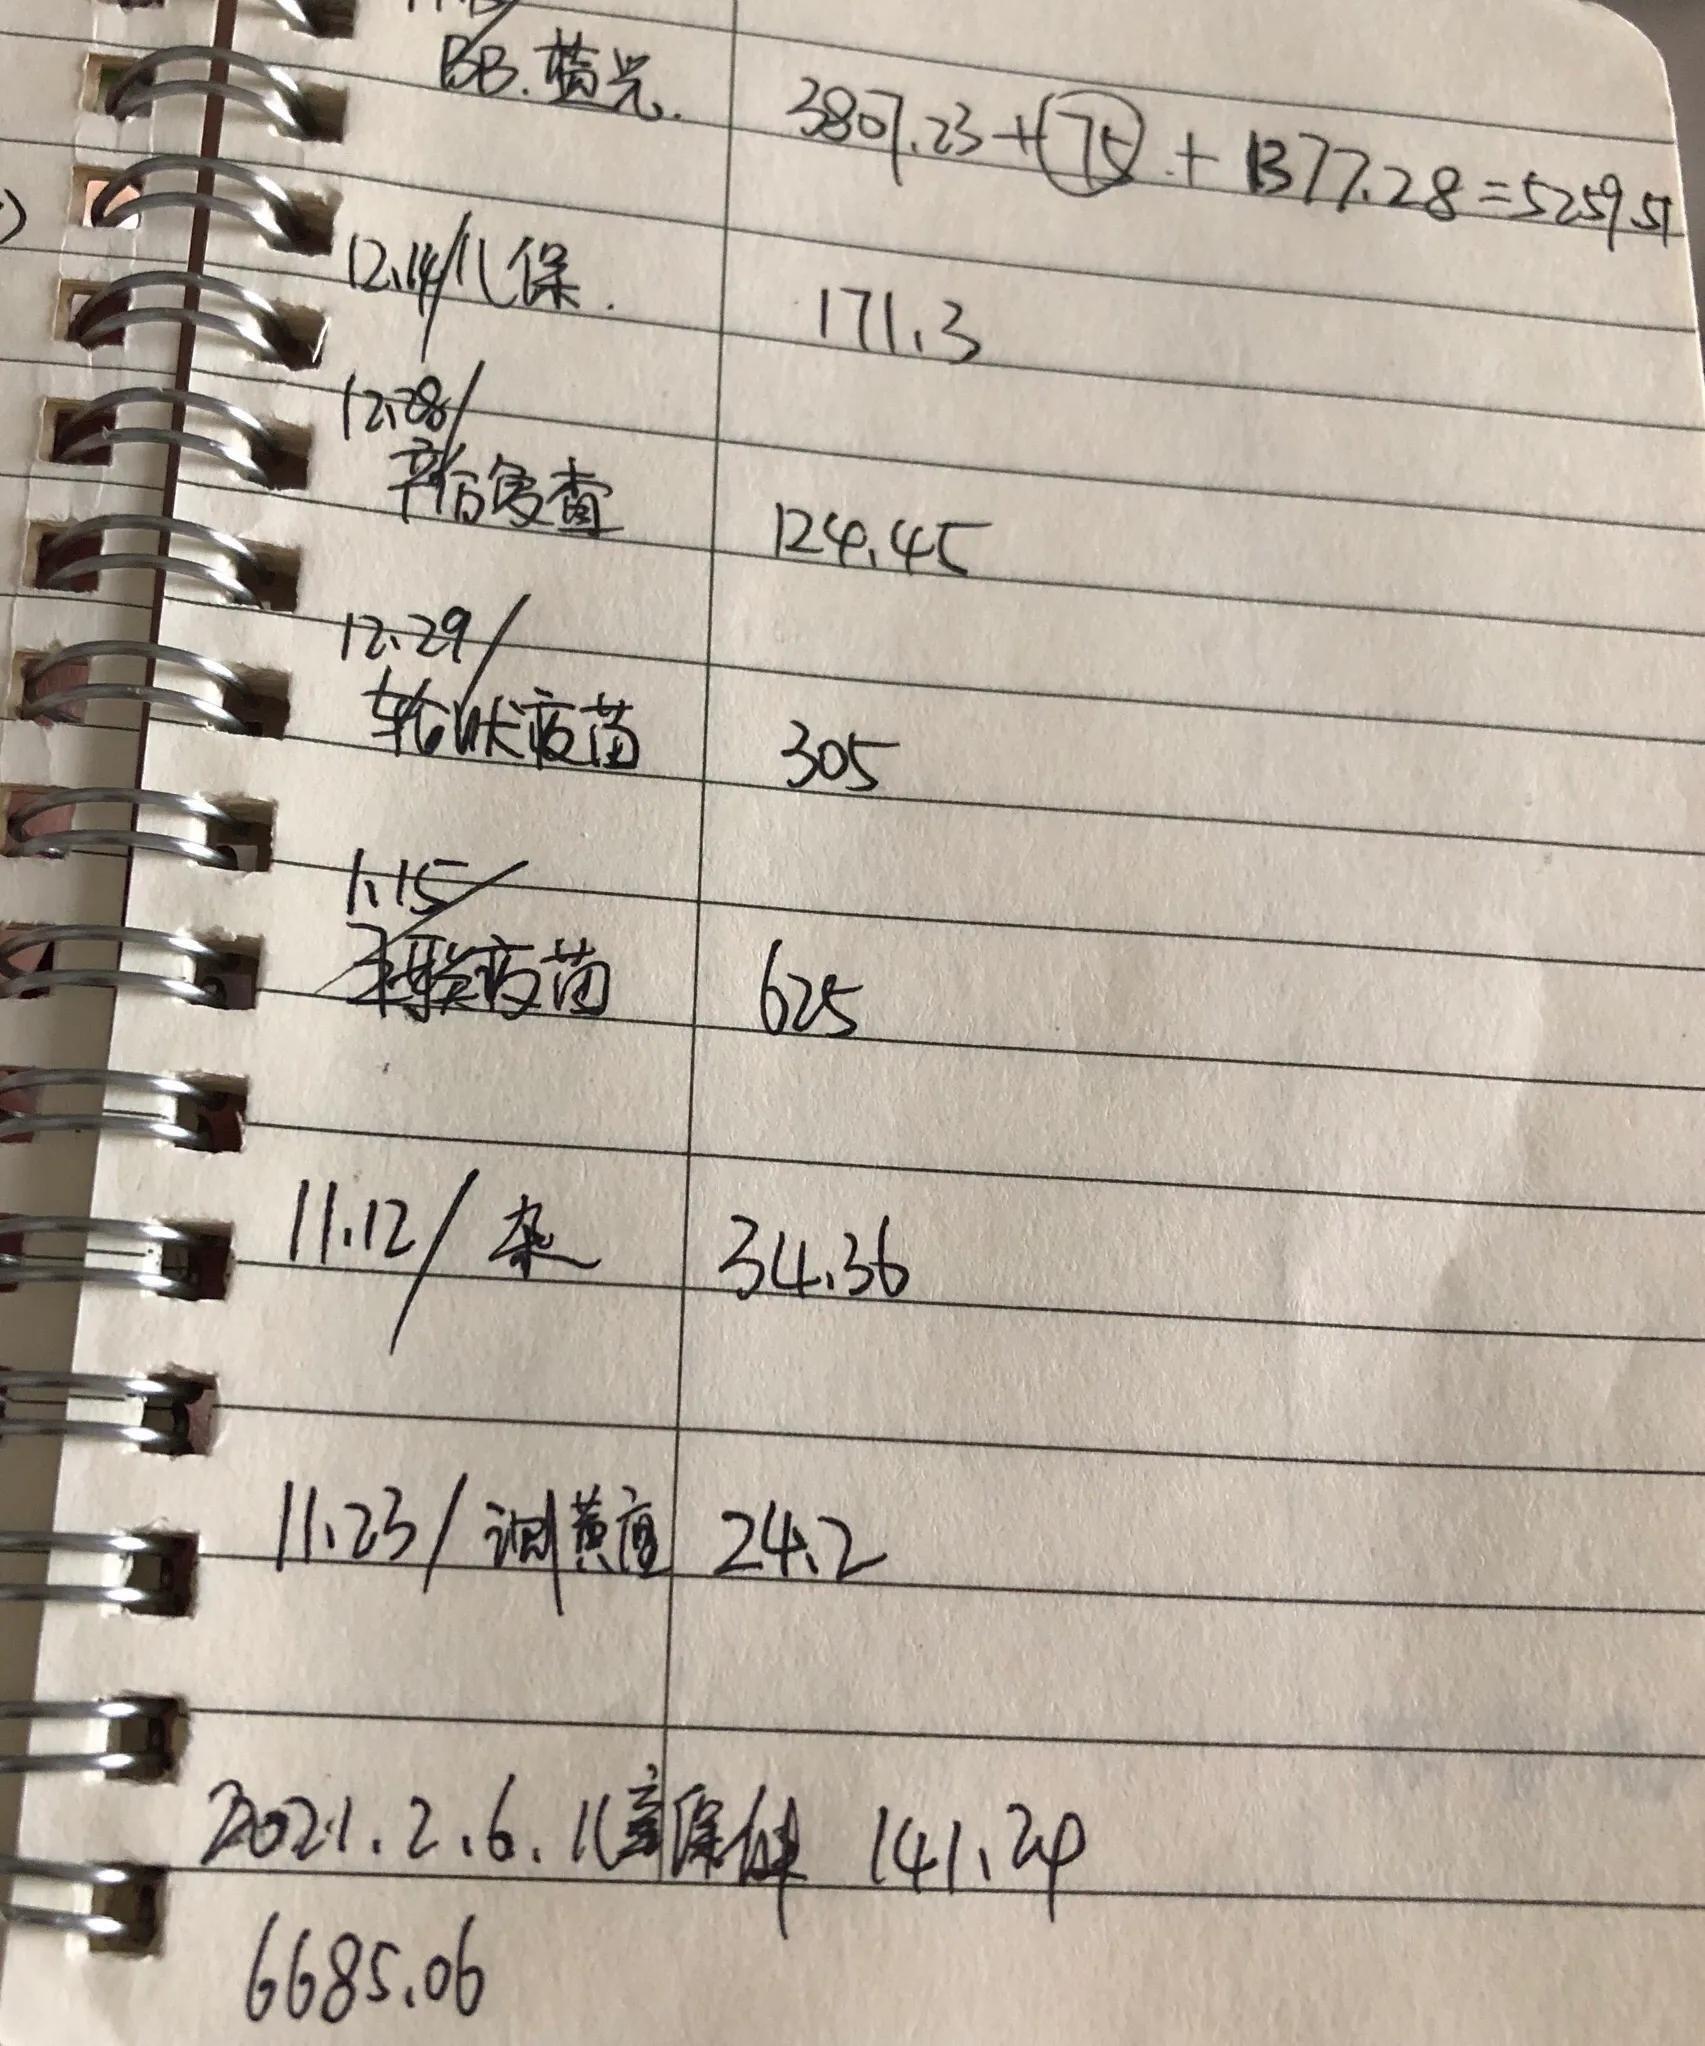 BB.蓝光. 3807.23+75+1377.28=5259.51
12.14/儿保. 171.3
12.28/
复查 124.45
12.29/
轮状疫苗 305
1.15/
疫苗 625
11.12/杂 34.36
11.23/测黄疸 24.2
2021.2.6.儿童保健 141.24
6685.06